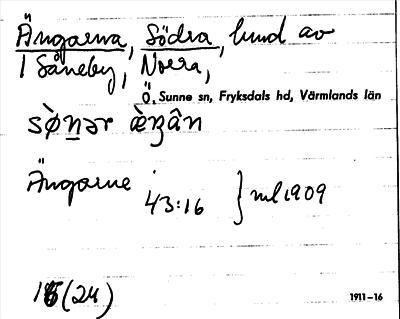 Ängarna, Södra, hmd av
1 Såneby, Norra,
Ö. Sunne sn, Fryksdals hd, Värmlands län
sø̀nər æ̀ŋân
Ängarne
43:16 } ml 1909
(24)
1911-16